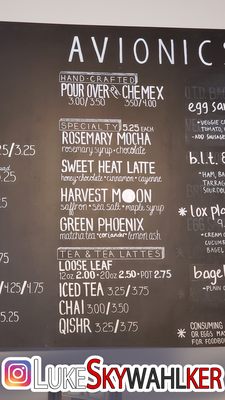 AVIONICS
HAND-CRAFTED
POUR OVER OR CHEMEX
3.00/3.50 3.50/4.00
SPECIALTY 5.25 EACH
ROSEMARY MOCHA
rosemary syrup • chocolate
SWEET HEAT LATTE
honey • chocolate • cinnamon • cayenne
HARVEST MOON
saffron • sea salt • maple syrup
GREEN PHOENIX
matcha tea • coriander • lemon ash
TEA & TEA LATTES
LOOSE LEAF
12oz 2.00 • 20oz 2.50 • POT 2.75
ICED TEA 3.25/3.75
CHAI 3.00/3.50
QISHR 3.25/3.75
.25/3.25
5.25
/4.25/4.75
egg san
• VEGGIE
TOMATO,
• ADD SAUSAGE
b.l.t. &
• HAM, BA
TARRAG
SOURD
* lox pla
• CREAM
CUCUMB
BAGEL
bagel
• PLAIN
* CONSUMING
OR EGGS MA
FOR FOODBO
LUKESKYWAHLKER